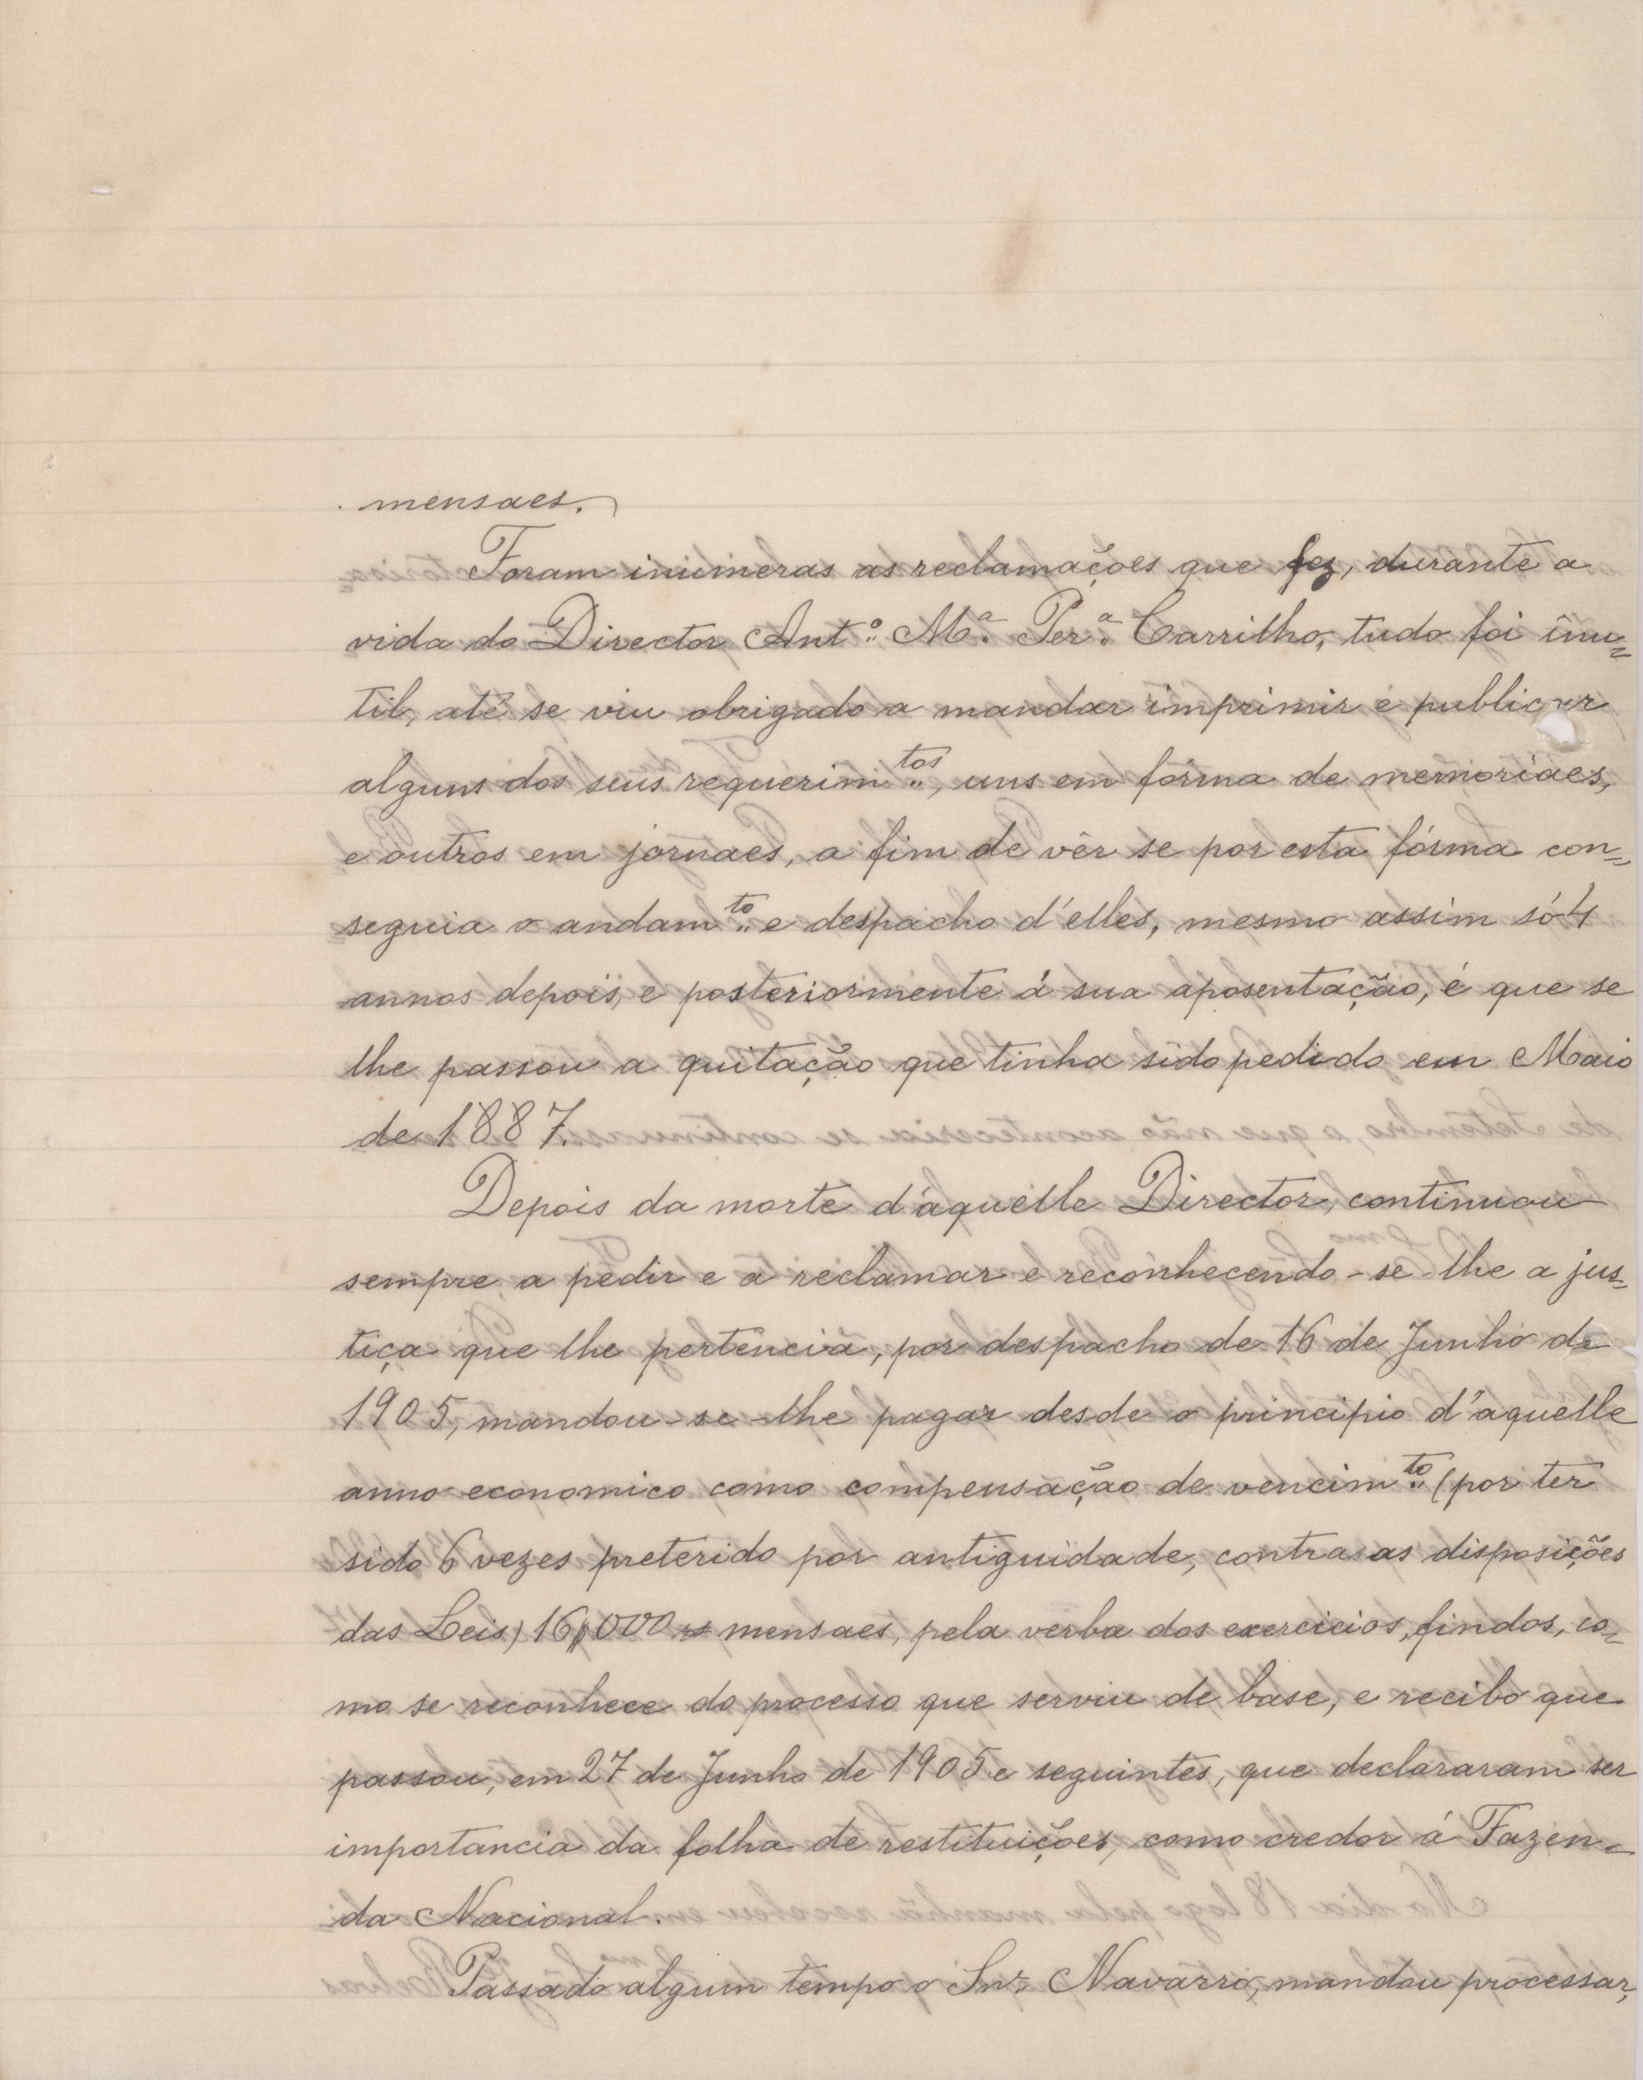 mensaes.
Foram inumeras as reclamações que fez, durante a
vida do Director Ant.º M.ª Per.ª Carrilho, tudo foi inu=
til, até se viu obrigado a mandar imprimir e publicar
alguns dos seus requerim.tos, uns em fórma de memoriaes,
e outros em jornaes, a fim de vêr se por esta fórma con=
seguia o andam.to e despacho d'elles, mesmo assim só 4
annos depois, e posteriormente á sua aposentação, é que se
lhe passou a quitação que tinha sido pedido em Maio
de 1887.
Depois da morte d'aquelle Director, continuou
sempre a pedir e a reclamar e reconhecendo-se-lhe a jus=
tiça que lhe pertencia, por despacho de 16 de Junho de
1905, mandou-se-lhe pagar desde o principio d'aquelle
anno economico como compensação de vencim.to (por ter
sido 6 vezes preterido por antiguidade, contra as disposições
das Leis) 16$000 rs mensaes, pela verba dos exercicios, findos, co=
mo se reconhece do processo que serviu de base, e recibo que
passou, em 27 de Junho de 1905 e seguintes, que declararam ser
importancia da folha de restituições, como credor á Fazen=
da Nacional.
Passado algum tempo o Snr. Navarro, mandou processar,